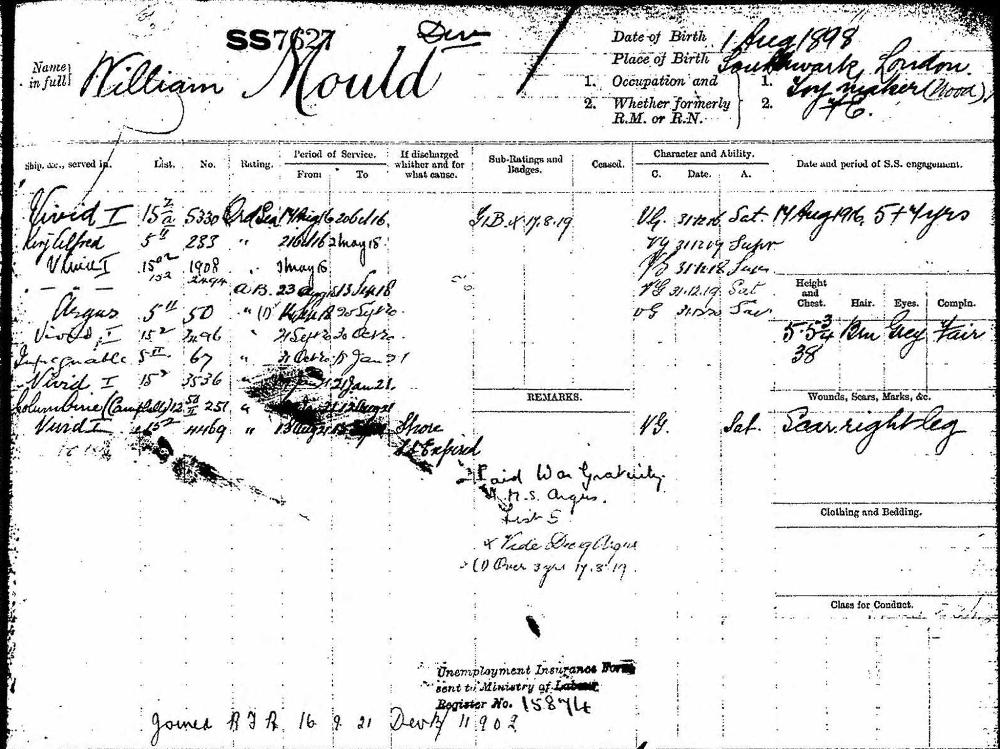 SS7627 Dev
Name in full} William Mould
Date of Birth 1 Aug 1898
Place of Birth Southwark, London.
1. Occupation and 1. Toy maker (Wood)
2. Whether formerly R.M. or R.N. 2.
Ship, &c., served in. List. No. Rating. Period of Service. From To If discharged whether and for what cause. Sub-Ratings and Badges. Ceased. Character and Ability. C. Date. A. Date and period of S.S. engagement.
Vivid I 15 5330 Ord Sea 17 Aug 16 20 Oct 16. G.B. x 17.8.19 VG. 31.12.16 Sat. 17 Aug 1916, 5+7yrs
King Alfred 5 283 " 21 Oct 16 2 May 18. VG 31.12.17 Supr
Vivid I 15 1908 " 3 May 18 VG 31.12.18 Supr
" — 15 A.B. 23 Aug 18 13 Sep 18 VG 31.12.19 Sat
Argus 5 50 " (1) 14 Sep 18 20 Sep 20 VG 31.12.20 Sat
Height and Chest. Hair. Eyes. Compln.
Vivid I 15 " 21 Sep 20 30 Oct 20 5.5¾ Brn Grey Fair
Impregnable 5 67 " 31 Oct 20 Jan 21 38
Vivid I 15 3536 " Jan 21 21 Jan 21.
REMARKS. Wounds, Scars, Marks, &c.
Columbine (Campbell) 12 251 "
Vivid I 15 4469 " 13 Aug 21 Shore VG. Sat. Scar right leg
SS Expired
Paid War Gratuity
H.M.S. Argus.
List 5
Clothing and Bedding.
x Vide Argus
(1) Over 3 yrs 17.8.19.
Class for Conduct.
Unemployment Insurance Form
sent to Ministry of Labour
Register No. 15874
Joined 16 9 21 Dev B/ 11902